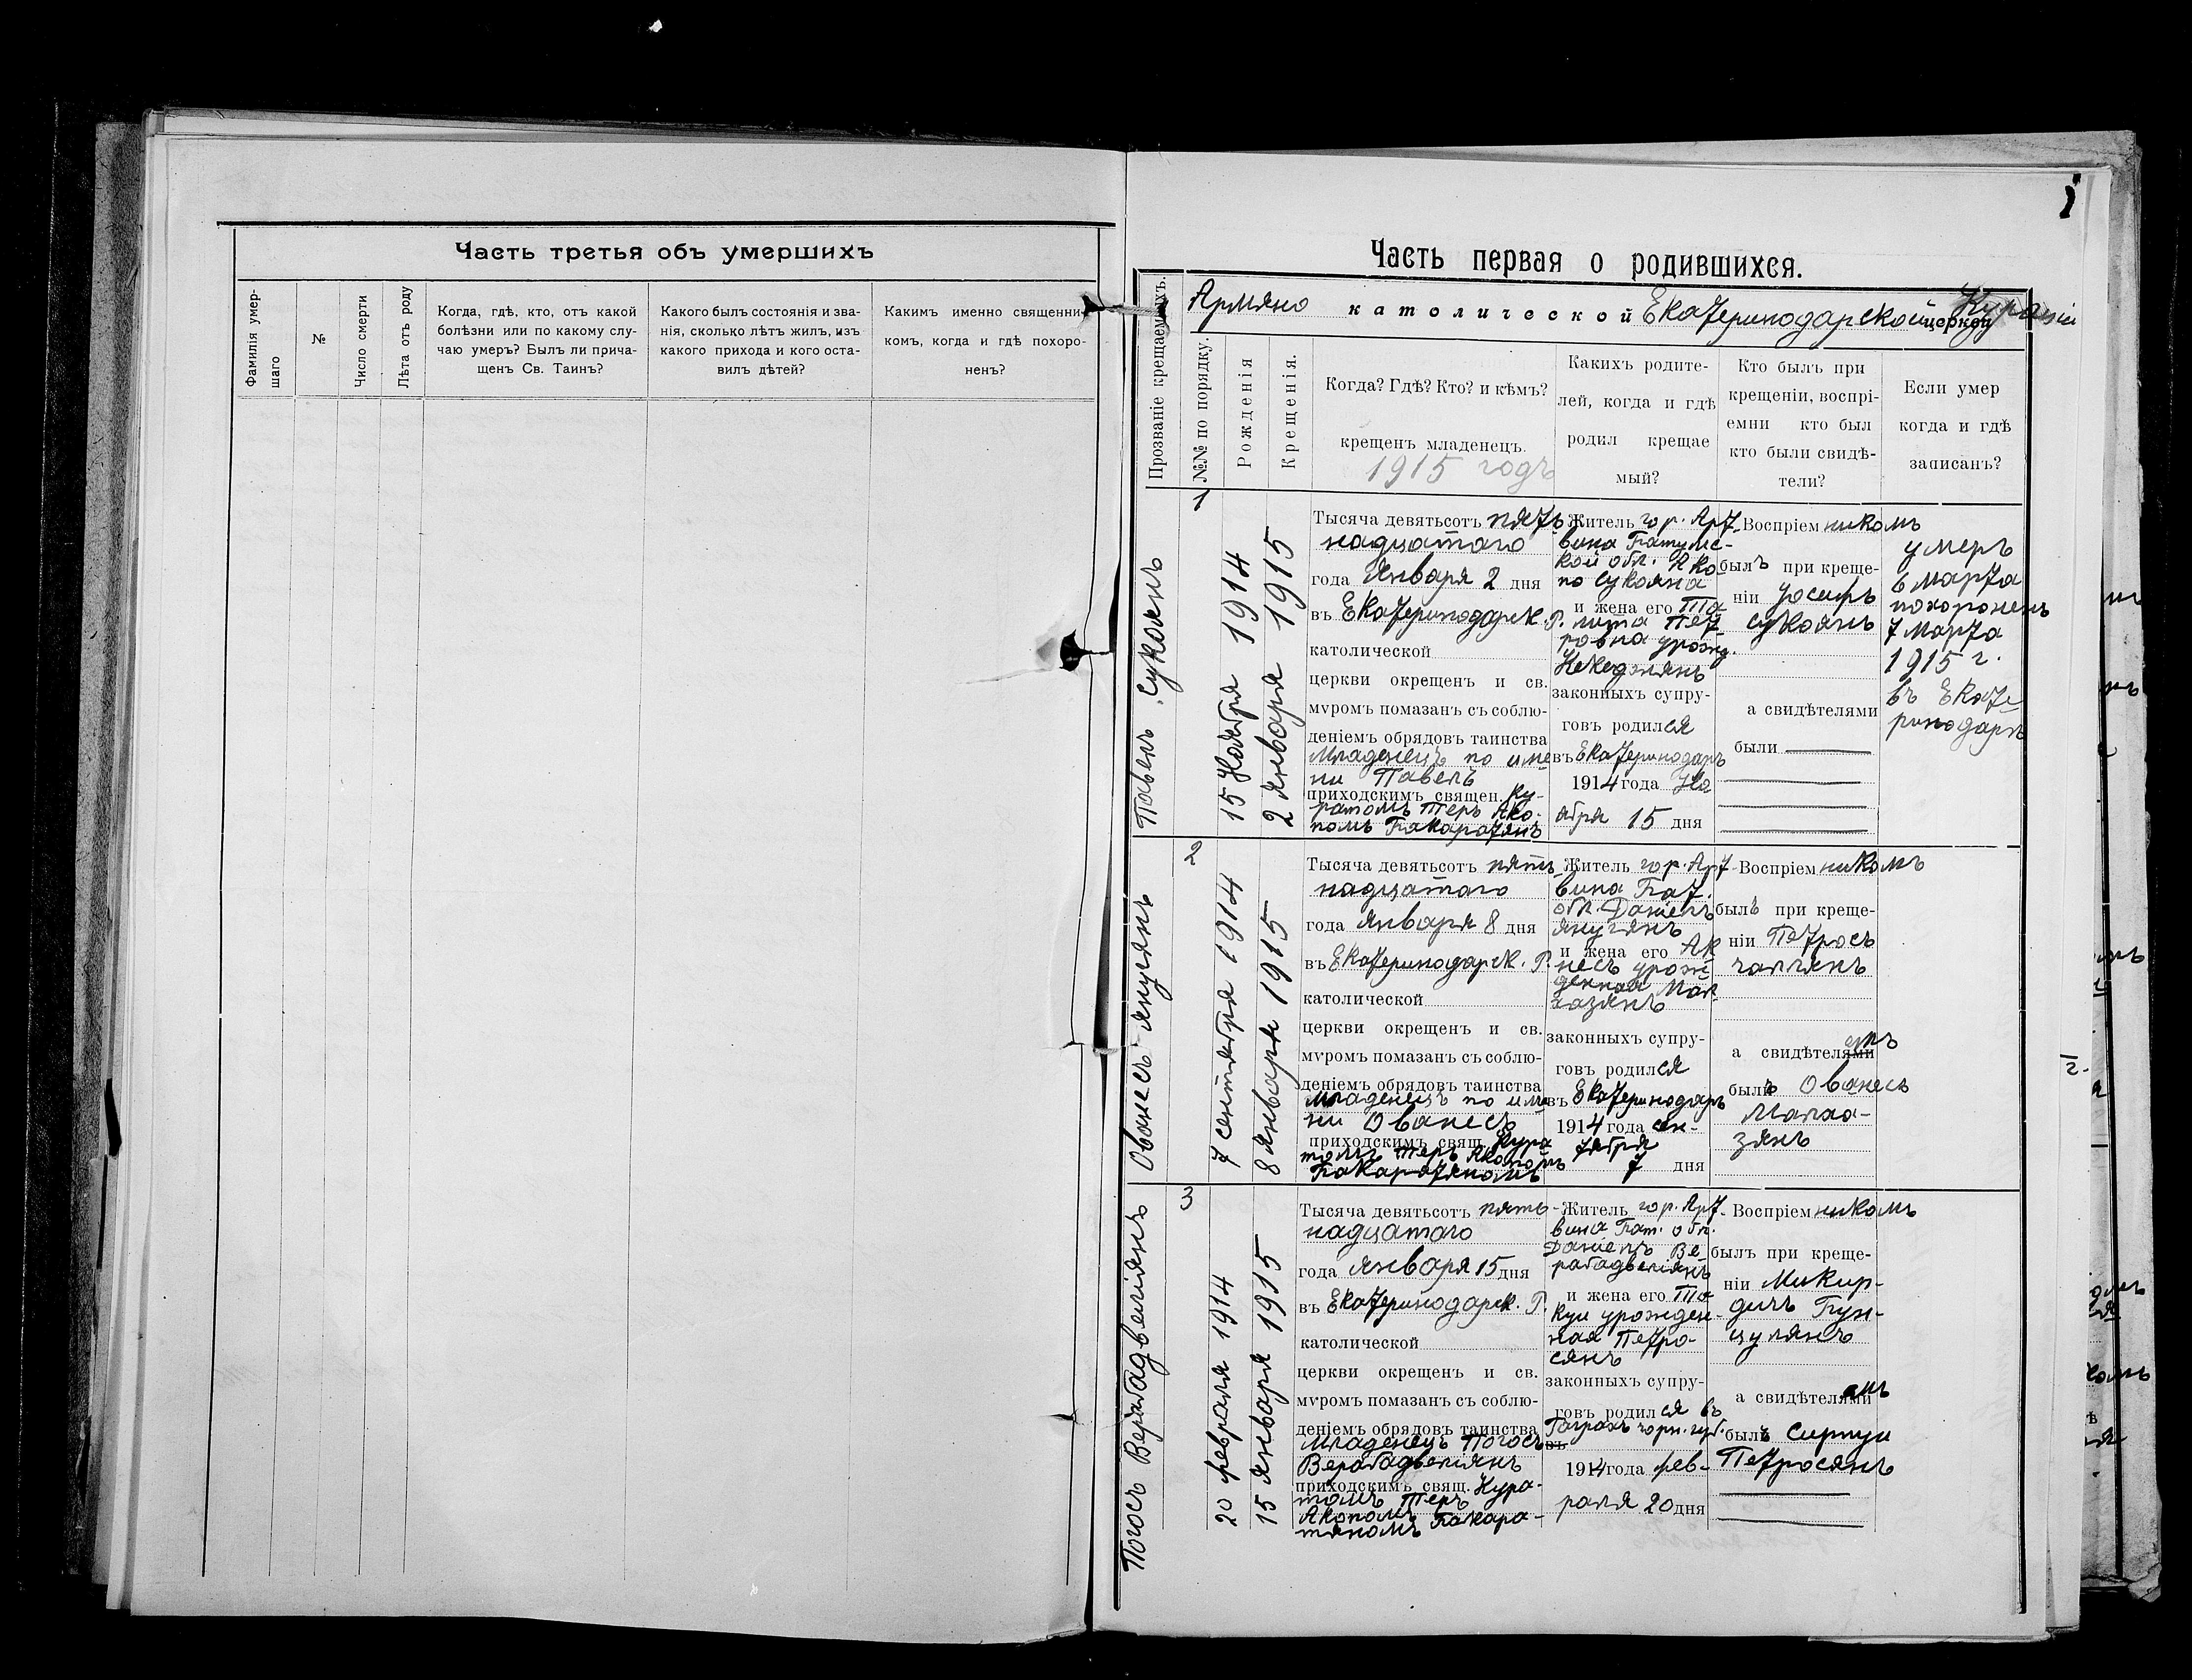 Часть третья объ умершихъ
Фамилія умер-
шаго
№
Число смерти
Лѣта отъ роду
Когда, гдѣ, кто, отъ какой
болѣзни или по какому слу-
чаю умеръ? Былъ ли прича-
щенъ Св. Таинъ?
Какого былъ состоянія и зва-
нія, сколько лѣтъ жилъ, изъ
какого прихода и кого оста-
вилъ дѣтей?
Какимъ именно священни-
комъ, когда и гдѣ похоро-
ненъ?
1
Часть первая о родившихся.
Армяно католической Екатеринодарской церкви Курацiи
Прозваніе крещаемыхъ.
№№ по порядку.
Рожденія
Крещенія.
Когда? Гдѣ? Кто? и кѣмъ?
крещенъ младенецъ.
1915 годъ
Какихъ родите-
лей, когда и гдѣ
родил крещае
мый?
Кто былъ при
крещеніи, воспрі-
емни кто был
кто были свидѣ-
тели?
Если умер
когда и гдѣ
записанъ?
Павелъ Сукоянъ
1
15 Ноября 1914
2 января 1915
Тысяча девятьсот пять
надцатаго
года Января 2 дня
въ Екатеринодарск. Р.
католической
церкви окрещенъ и св.
мѵромъ помазан съ соблю-
деніемъ обрядовъ таинства
Младенецъ по име
ни Павелъ
приходскимъ священ. Ку-
ратомъ Теръ Ако-
помъ Бакаратянъ
Житель гор. Арт-
вина Батумс-
кой обл. Ако
по Сукояна
и жена его
Пет
ровна урожд.
законныхъ супру-
говъ родился
въ Екатеринодаръ
1914 года Но
ября 15 дня
Воспріемникомъ
былъ при креще-
ніи Іосифъ
Сукоянъ
а свидѣтелями
были
умеръ
6 марта
похороненъ
7 марта
1915 г.
въ Екате
ринодаръ
Ованесъ Янугянъ
2
7 сентября 1914
8 января 1915
Тысяча девятьсотъ пять
надцатаго
года января 8 дня
въ Екатеринодарск. Р.
католической
церкви окрещенъ и св.
мѵромъ помазан съ соблю-
деніемъ обрядовъ таинства
младенецъ по име
ни Ованесъ
приходскимъ свящ. Кура
томъ Теръ Акопомъ
Бакаратяномъ
Житель гор. Арт-
вина Бат.
обл. Даніелъ
Янугянъ
и жена его Аг
несъ урож
денная Мал
хазянъ
законныхъ супру-
говъ родился
въ Екатеринодаръ
1914 года сен-
тября
7 дня
Воспріемникомъ
былъ при креще-
ніи Петросъ
Чалчянъ
а свидѣтелями емъ
былъ Ованесъ
Малха-
зянъ
Погосъ Верабадвеліянъ
3
20 февраля 1914
15 января 1915
Тысяча девятьсотъ пять
надцатаго
года января 15 дня
въ Екатеринодарск. Р.
католической
церкви окрещенъ и св.
мѵромъ помазан съ соблю-
деніемъ обрядовъ таинства
Младенецъ Погосъ
Верабадвеліянъ
приходскимъ свящ. Кура-
томъ Теръ
Акопомъ Бакара-
тяномъ
Житель гор. Арт-
вина Бат. обл.
Даніелъ Ве
рабадвеліянъ
и жена его Та
куи урожден-
ная Петро-
сянъ
законныхъ супру-
говъ родился въ
Гаграхъ черн. губ.
въ
1914 года фев-
раля 20 дня
Воспріемникомъ
былъ при креще-
ніи Микир-
дичъ Гун-
цулянъ
а свидѣтелями емъ
былъ Сирпуи
Петросянъ